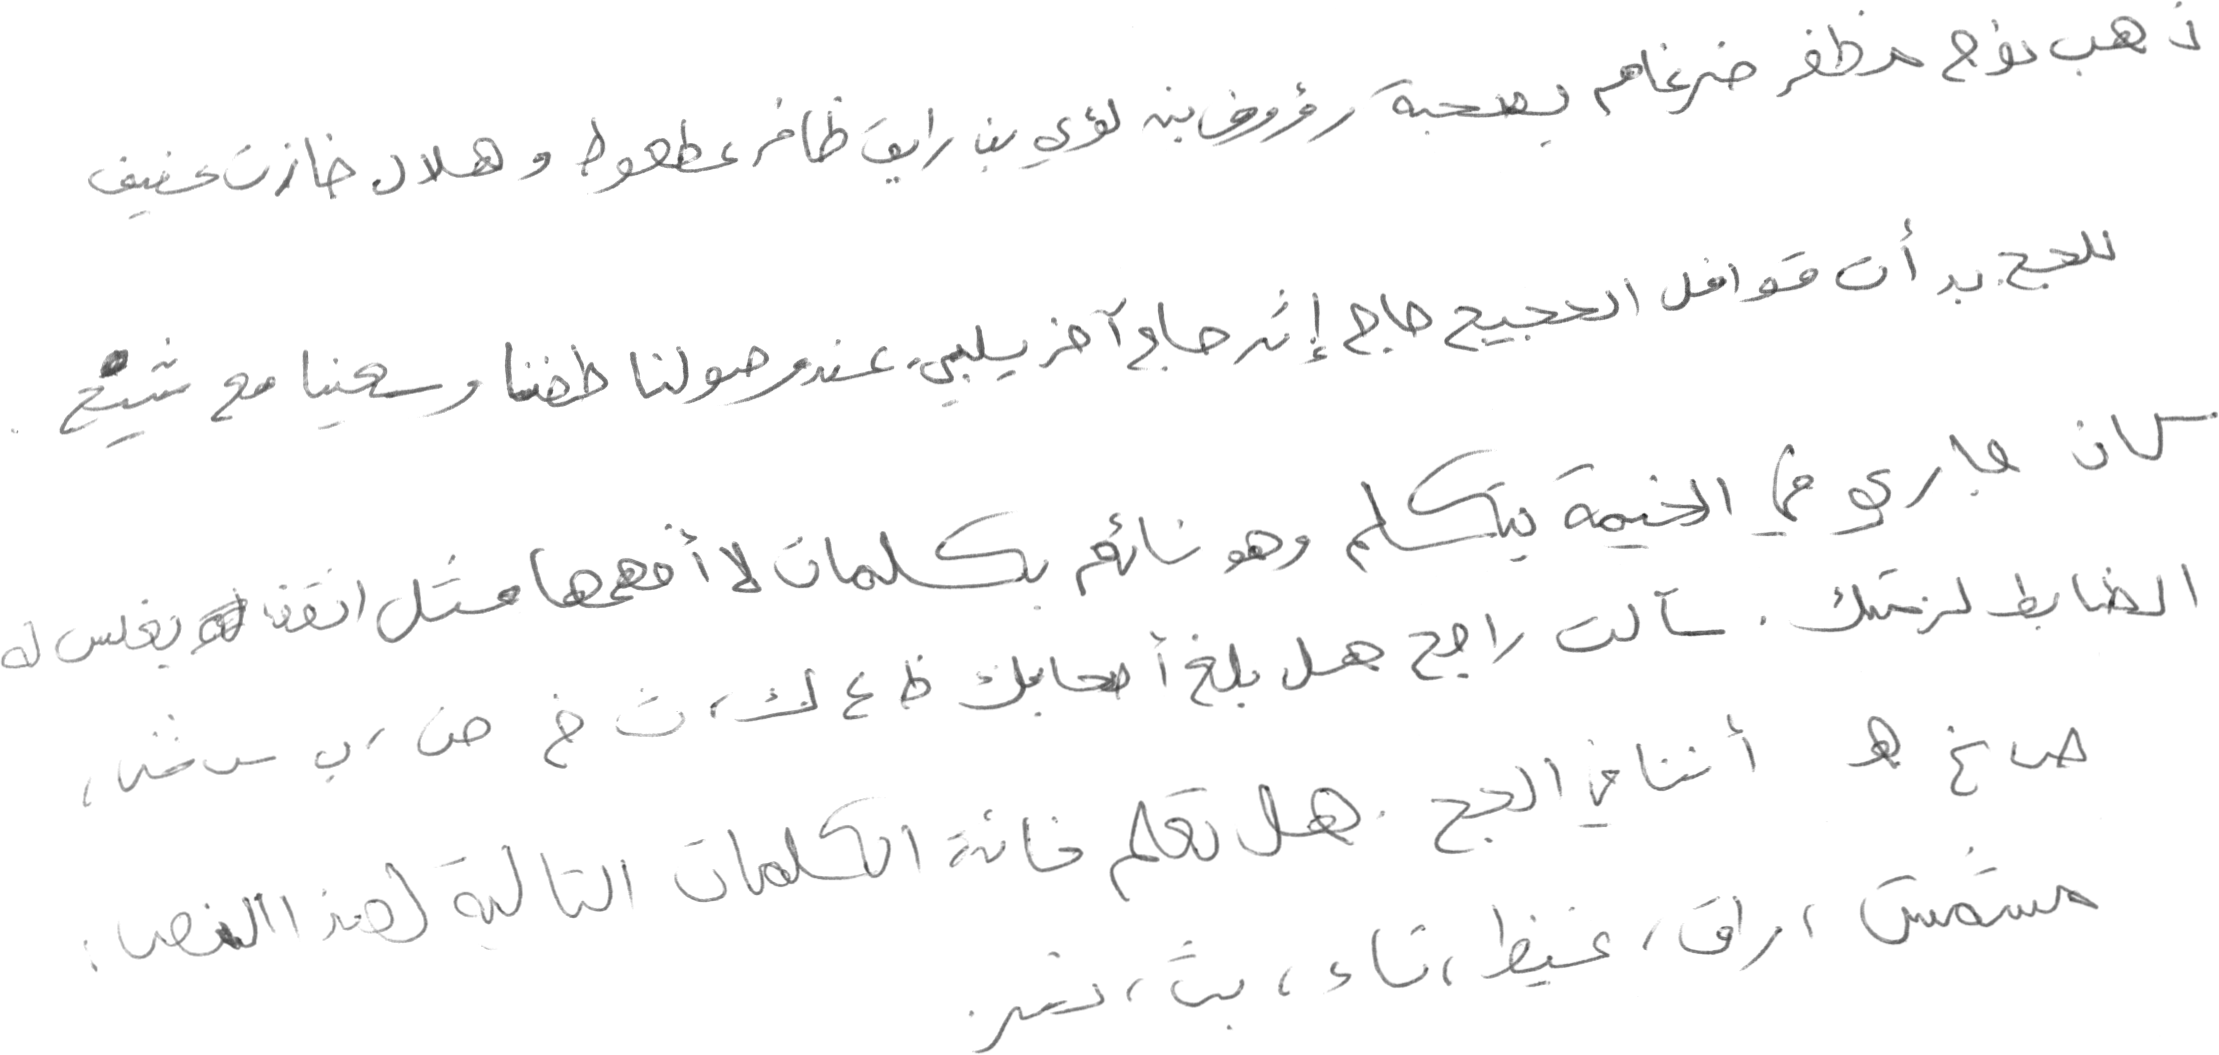 ذهب نوح مظفر ضرغام بصحبة رؤوف بن لؤي بن رايق ظافر عطعوط وهلال خازن عفيف
للحج. بدأت قوافل الحجيج حاج إثر حاج آخر يلبي. عند وصولنا طفنا وسعينا مع شيخ.
كان جاري في الخيمة يتكلم وهو نائم بكلمات لا أفهمها مثل يغلس له
الضابط لزحتك. سألت راجح هل بلغ أصحابك ظ ع ك، ث خ ص، ب س ش،
ص غ هـ أننا في الحج. هل تعلم خانة الكلمات التالية لهذا النص:
مشمس، راق، غيظ، تاء، بث، نضر.